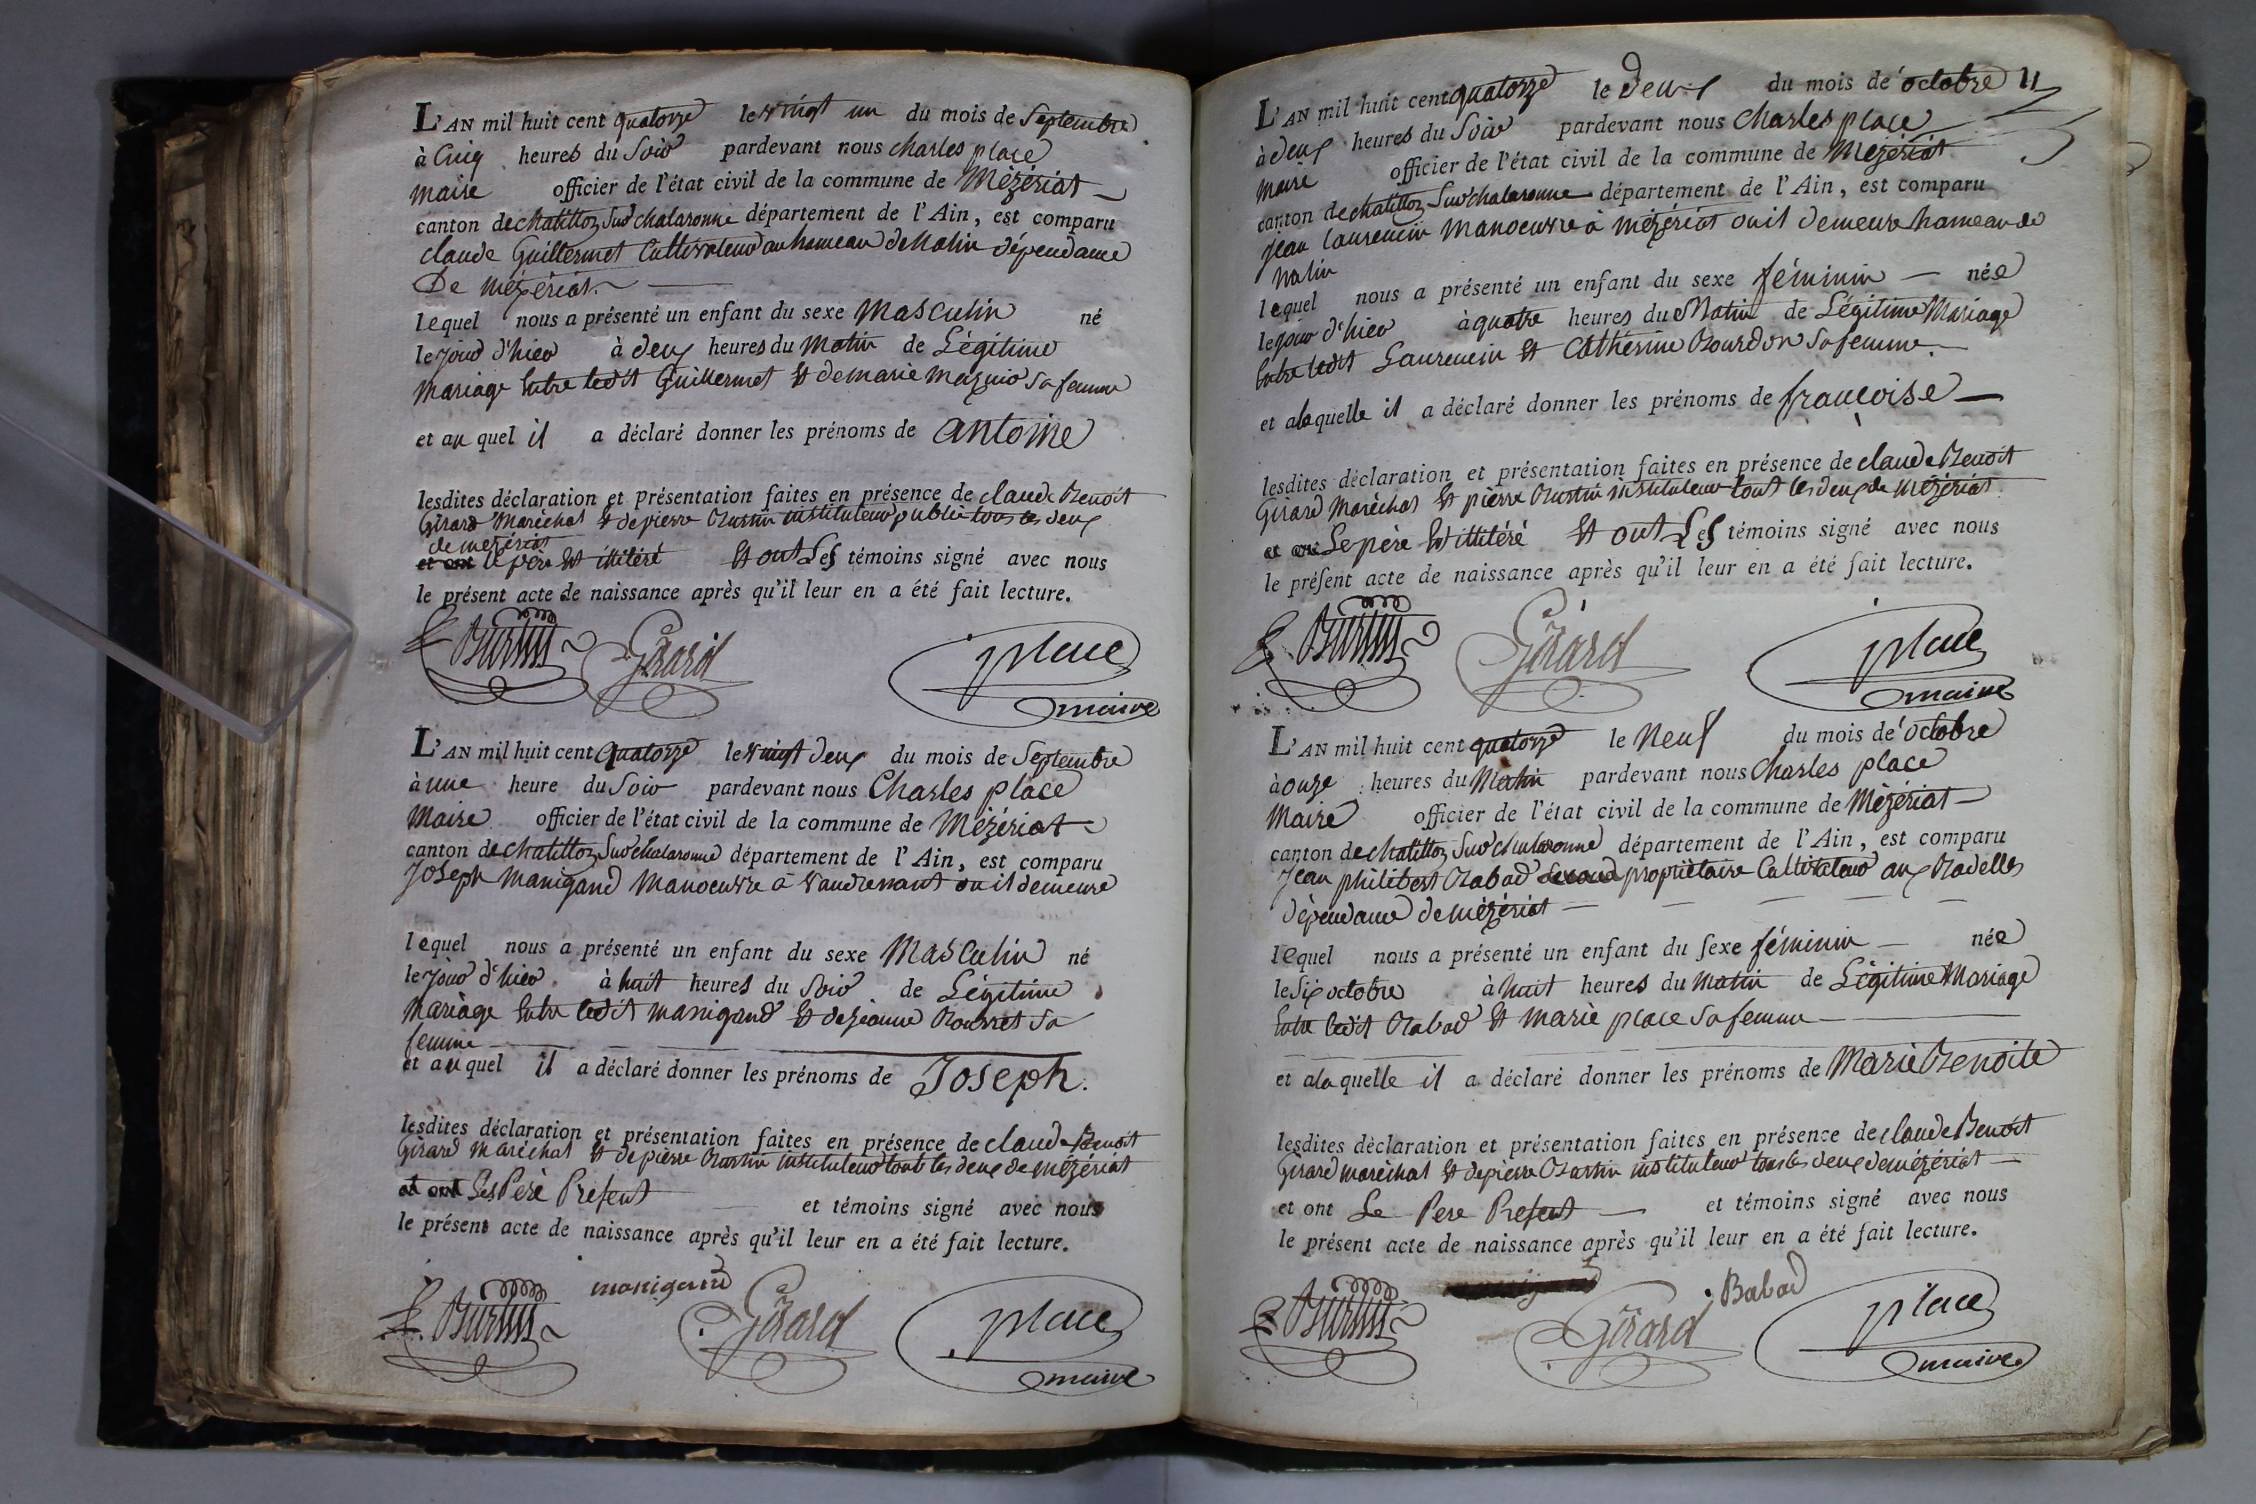 L'AN mil huit cent quatorze le vingt un du mois de Septembre
à Cinq heures du Soir pardevant nous charles place
maire officier de l'état civil de la commune de Mézériat
canton de chatillon Sur chalaronne département de l'Ain, est comparu
claude Guillermet Cultivateur au hameau de Malin dépendance
De mézériat
lequel nous a présenté un enfant du sexe Masculin né
le jour d'hier à deux heures du Matin de Légitime
Mariage Entre ledit Guillermet Et de marie mazuir Sa femme
et au quel il a déclaré donner les prénoms de antoine
lesdites déclaration et présentation faites en présence de claude Benoit
Girard Maréchal Et de pierre Burtin instituteur public tous les deux
de mézériat
et ont le père Est illitéré Et ont Les témoins signé avec nous
le présent acte de naissance après qu'il leur en a été fait lecture.
Burtin Girard place
maire
L'AN mil huit cent quatorze le vingt deux du mois de Septembre
à une heure du Soir pardevant nous Charles place
Maire officier de l'état civil de la commune de Mézériat
canton de chatillon Sur chalaronne département de l'Ain, est comparu
Joseph Manigand Manoeuvre à Vaudrenant ou il demeure
lequel nous a présenté un enfant du sexe Masculin né
le jour d'hier à huit heures du Soir de Légitime
Mariage Entre ledit manigand Et de jeanne Bourret Sa
femme
et au quel il a déclaré donner les prénoms de Joseph.
lesdites déclaration et présentation faites en présence de claude Benoit
Girard Maréchal Et de pierre Burtin instituteur tout les deux de mézériat
et ont Les Père Présent et témoins signé avec nous
le présent acte de naissance après qu'il leur en a été fait lecture.
manigand
Burtin Girard place
maire
L'AN mil huit cent quatorze le Deux du mois de octobre 11
à deux heures du Soir pardevant nous Charles place
maire officier de l'état civil de la commune de Mézériat
canton de chatillon Sur chalaronne département de l'Ain, est comparu
jean Laurencin Manoeuvre à mézériat ou il demeure hameau de
Malin
lequel nous a présenté un enfant du sexe féminin née
le jour d'hier à quatre heures du Matin de Légitime Mariage
Entre ledit Laurencin Et Catherine Bourdon Sa femme
et a laquelle il a déclaré donner les prénoms de françoise
lesdites déclaration et présentation faites en présence de claude Benoit
Girard Maréchal Et pierre Burtin instituteur tout les deux de mézériat
et ont Le père Est illitéré Et ont Les témoins signé avec nous
le présent acte de naissance après qu'il leur en a été fait lecture.
Burtin Girard place
maire
L'AN mil huit cent quatorze le Neuf du mois de octobre
à onze heures du Matin pardevant nous Charles place
Maire officier de l'état civil de la commune de Mézériat
canton de chatillon Sur chalaronne département de l'Ain, est comparu
Jean philibert Babad propriétaire Cultivateur aux Badelles
dépendance de mézériat
lequel nous a présenté un enfant du sexe féminin née
le Six octobre à huit heures du matin de Légitime Mariage
Entre ledit Babad Et marie place Sa femme
et a laquelle il a déclaré donner les prénoms de Marie Benoite
lesdites déclaration et présentation faites en présence de claude Benoit
Girard maréchal Et de pierre Burtin instituteur tous les deux de mézériat
et ont Le Pere Present et témoins signé avec nous
le présent acte de naissance après qu'il leur en a été fait lecture.
Babad
Burtin Girard place
maire